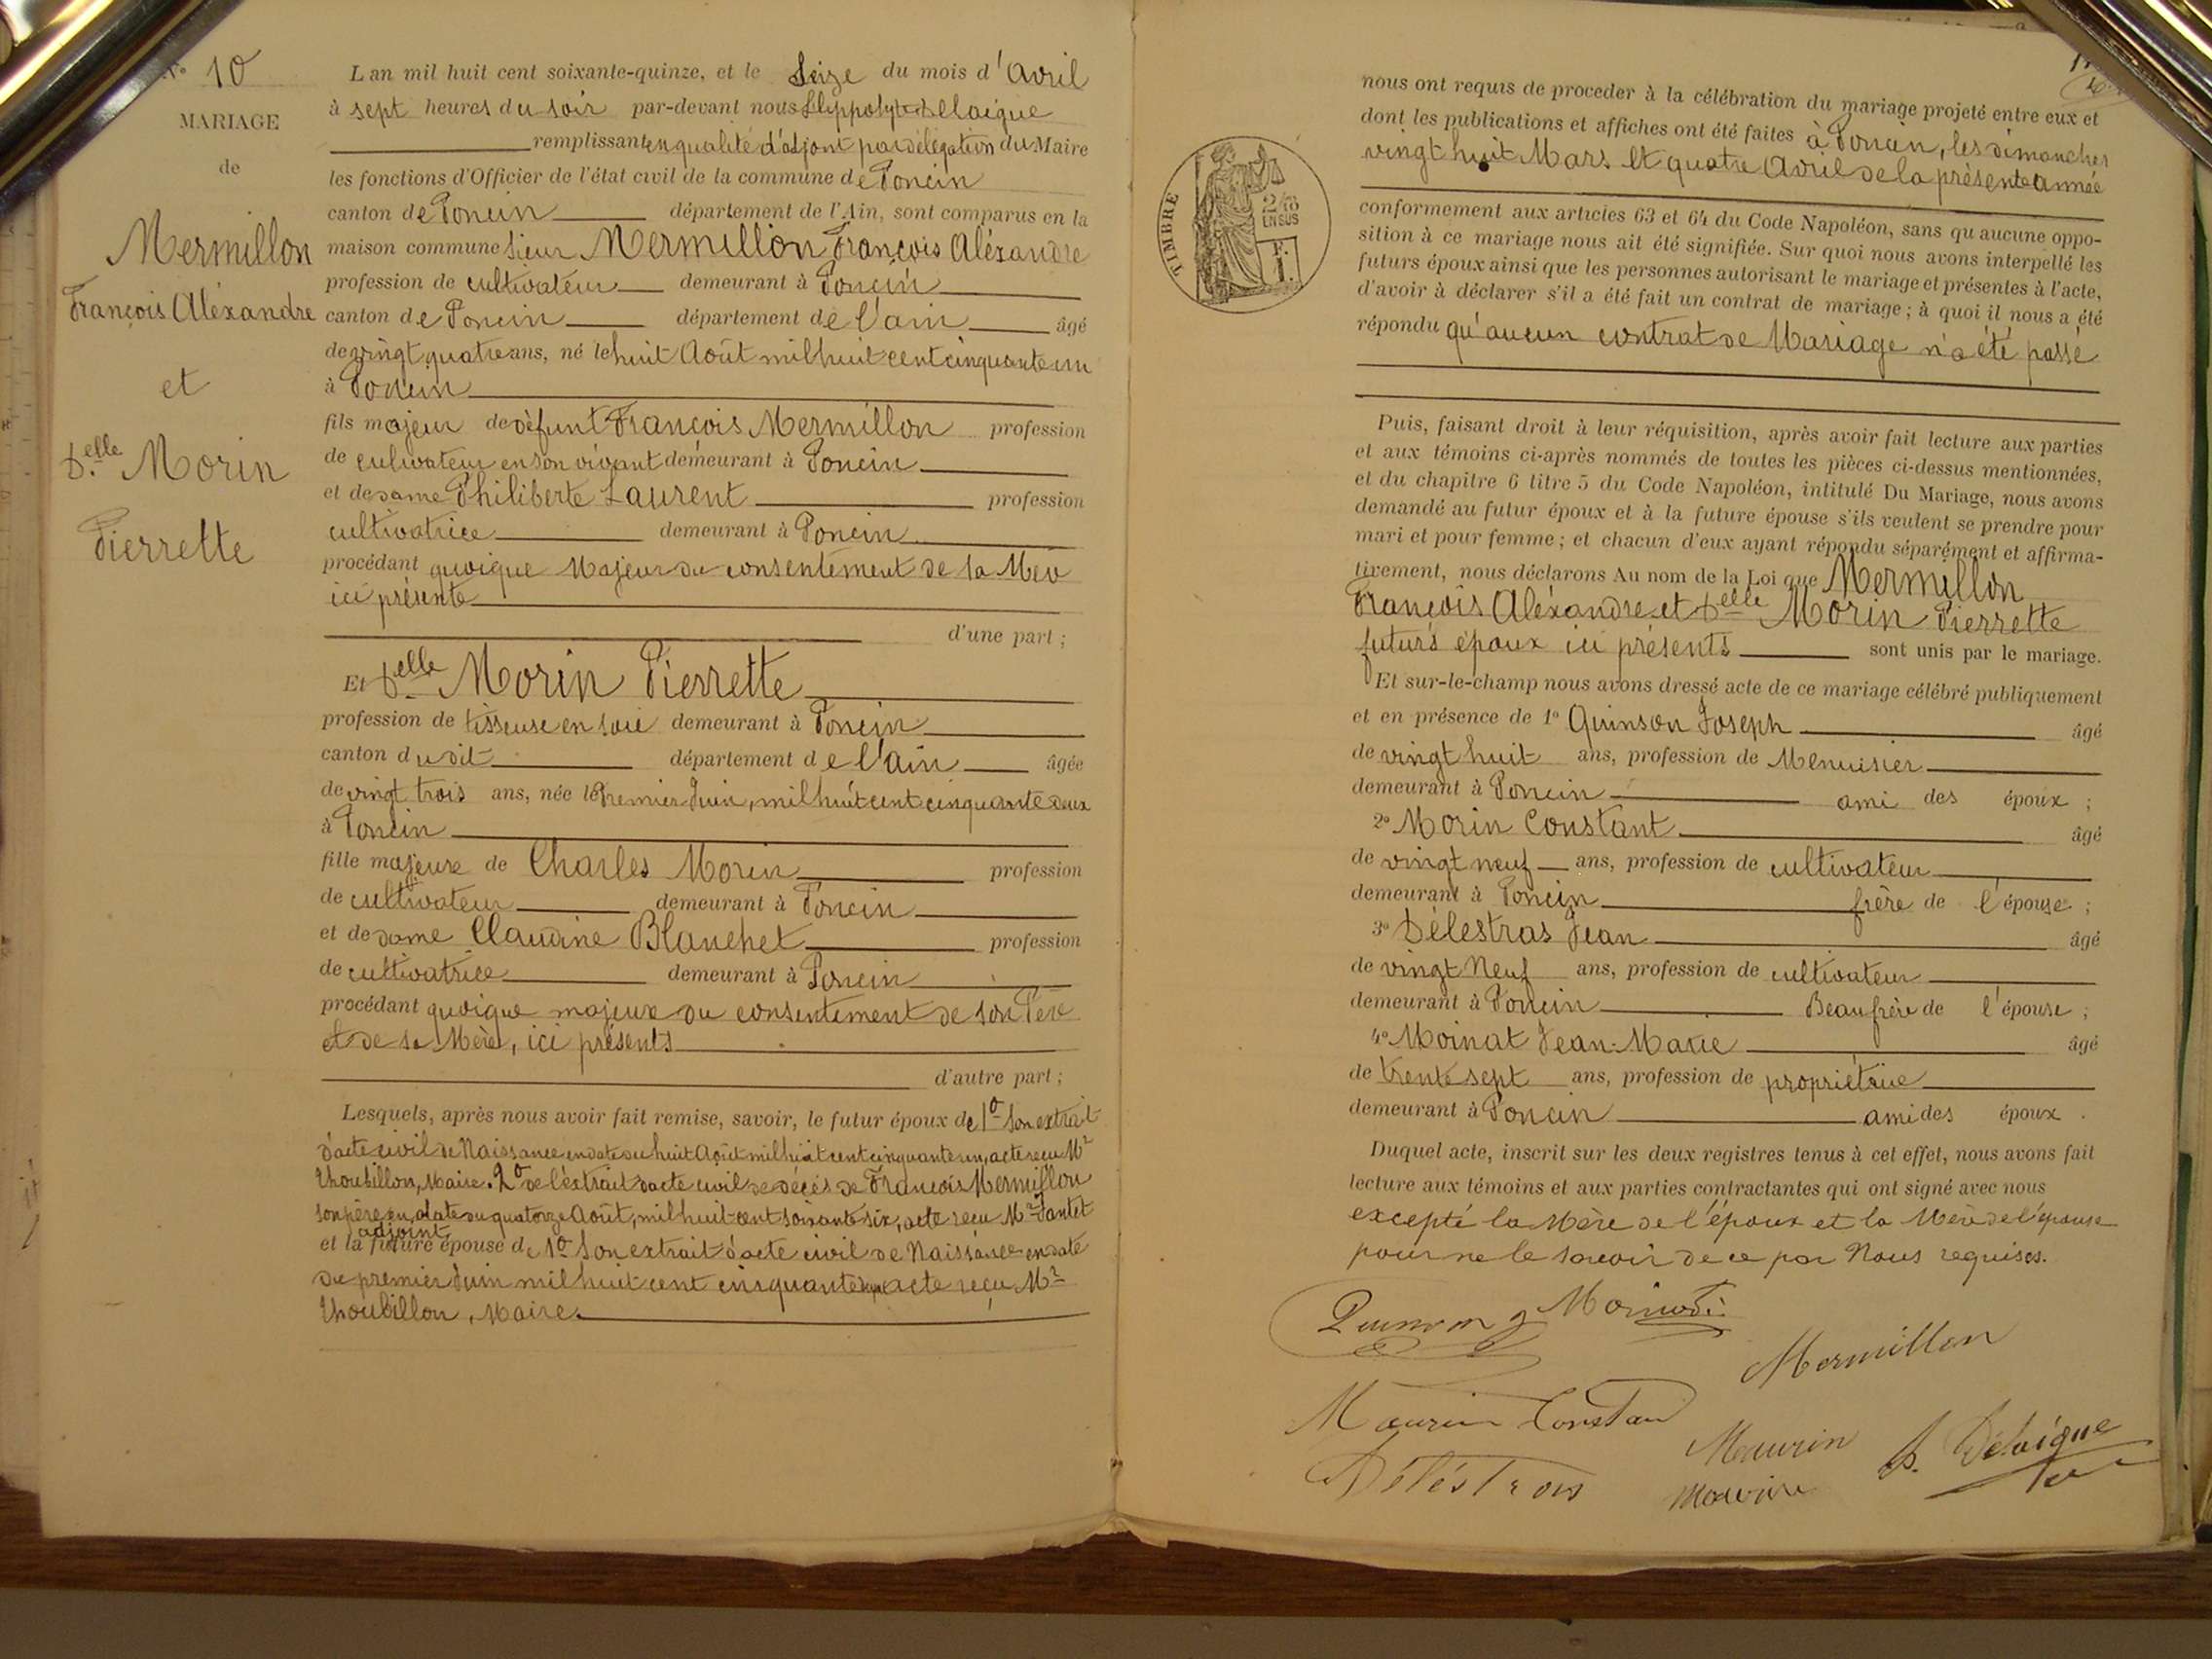 N° 10
MARIAGE
de
Mermillon
François Aléxandre
et
Delle Morin
Pierrette
L an mil huit cent soixante-quinze, et le Seize du mois d'Avril
à sept heures du soir par-devant nous Hyppolyte Delaigue
remplissant en qualité d'adjoint par délégation du Maire
les fonctions d'Officier de l'état civil de la commune de Poncin
canton de Poncin département de l'Ain, sont comparus en la
maison commune Sieur Mermillon François Aléxandre
profession de cultivateur demeurant à Poncin
canton de Poncin département de l'ain âgé
de vingt quatre ans, né le huit Août mil huit cent cinquante un
à Poncin
fils majeur de défunt François Mermillon profession
de cultivateur en son vivant demeurant à Poncin
et de dame Philiberte Laurent profession
cultivatrice demeurant à Poncin
procédant quoique Majeur du consentement de sa Mère
ici présente
d'une part ;
Et Delle Morin Pierrette
profession de tisseuse en soie demeurant à Poncin
canton dudit département de l'ain âgée
de vingt trois ans, née le Premier Juin, mil huit cent cinquante deux
à Poncin
fille majeure de Charles Morin profession
de cultivateur demeurant à Poncin
et de dame Claudine Blanchet profession
de cultivatrice demeurant à Poncin
procédant quoique majeure du consentement de son Père
et de sa Mère, ici présents
d'autre part ;
Lesquels, après nous avoir fait remise, savoir, le futur époux de 1° Son extrait
d'acte civil de Naissance en date du huit Août mil huit cent cinquante un, acte reçu Mr
Thoubillon, Maire. 2° de l'extrait d'acte civil de décès de François Mermillon
son père en date du quatorze Août, mil huit cent soixante six, acte reçu Mr Tantet
adjoint
et la future épouse de 1° Son extrait d'acte civil de Naissance en date
du premier Juin mil huit cent cinquante acte reçu Mr
Thoubillon, Maire.
nous ont requis de proceder à la célébration du mariage projeté entre eux et
dont les publications et affiches ont été faites à Poncin, les dimanches
vingt huit Mars et quatre Avril de la présente année
conformement aux articles 63 et 64 du Code Napoléon, sans qu aucune oppo-
sition à ce mariage nous ait été signifiée. Sur quoi nous avons interpellé les
futurs époux ainsi que les personnes autorisant le mariage et présentes à l'acte,
d'avoir à déclarer s'il a été fait un contrat de mariage ; à quoi il nous a été
répondu qu'aucun contrat de Mariage n'a été passé
TIMBRE
2/10
EN SUS
F.
1.
Puis, faisant droit à leur réquisition, après avoir fait lecture aux parties
et aux témoins ci-après nommés de toutes les pièces ci-dessus mentionnées,
et du chapitre 6 titre 5 du Code Napoléon, intitulé Du Mariage, nous avons
demandé au futur époux et à la future épouse s'ils veulent se prendre pour
mari et pour femme ; et chacun d'eux ayant répondu séparément et affirma-
tivement, nous déclarons Au nom de la Loi que Mermillon
François Aléxandre et Delle Morin Pierrette
futurs époux ici présents sont unis par le mariage.
Et sur-le-champ nous avons dressé acte de ce mariage célébré publiquement
et en présence de 1° Quinson Joseph âgé
de vingt huit ans, profession de Menuisier
demeurant à Poncin ami des époux ;
2° Morin Constant âgé
de vingt neuf ans, profession de cultivateur
demeurant à Poncin frère de l'épouse ;
3° Délestras Jean âgé
de vingt Neuf ans, profession de cultivateur
demeurant à Poncin Beaufrère de l'épouse ;
4° Moinat Jean-Marie âgé
de trente sept ans, profession de propriétaire
demeurant à Poncin ami des époux.
Duquel acte, inscrit sur les deux registres tenus à cet effet, nous avons fait
lecture aux témoins et aux parties contractantes qui ont signé avec nous
excepté la Mère de l'époux et la Mère de l'épouse
pour ne le savoir de ce par Nous requises.
Quinson J Moinat
Mermillon
Maurin Constan
Maurin H. Delaigue
Déléstras Maurin